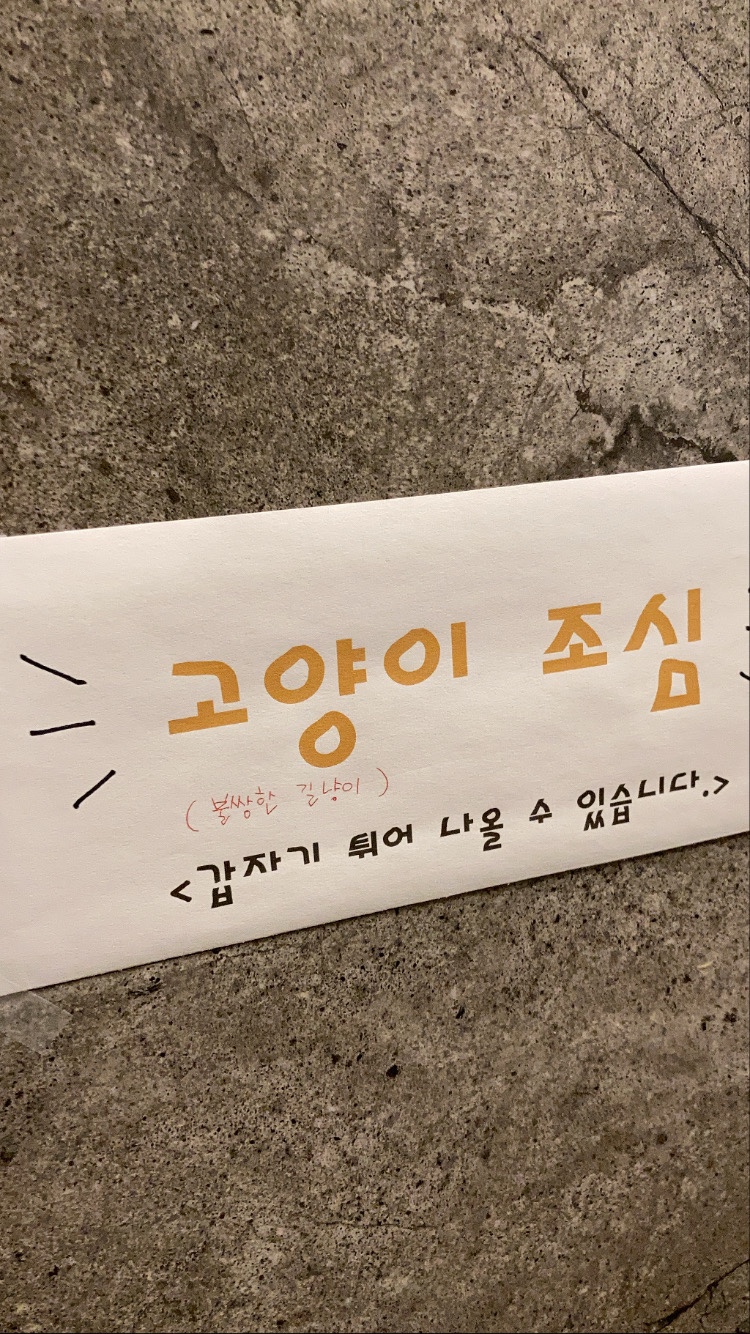 고양이 조심
(불쌍한 길냥이)
<갑자기 튀어 나올 수 있습니다.>